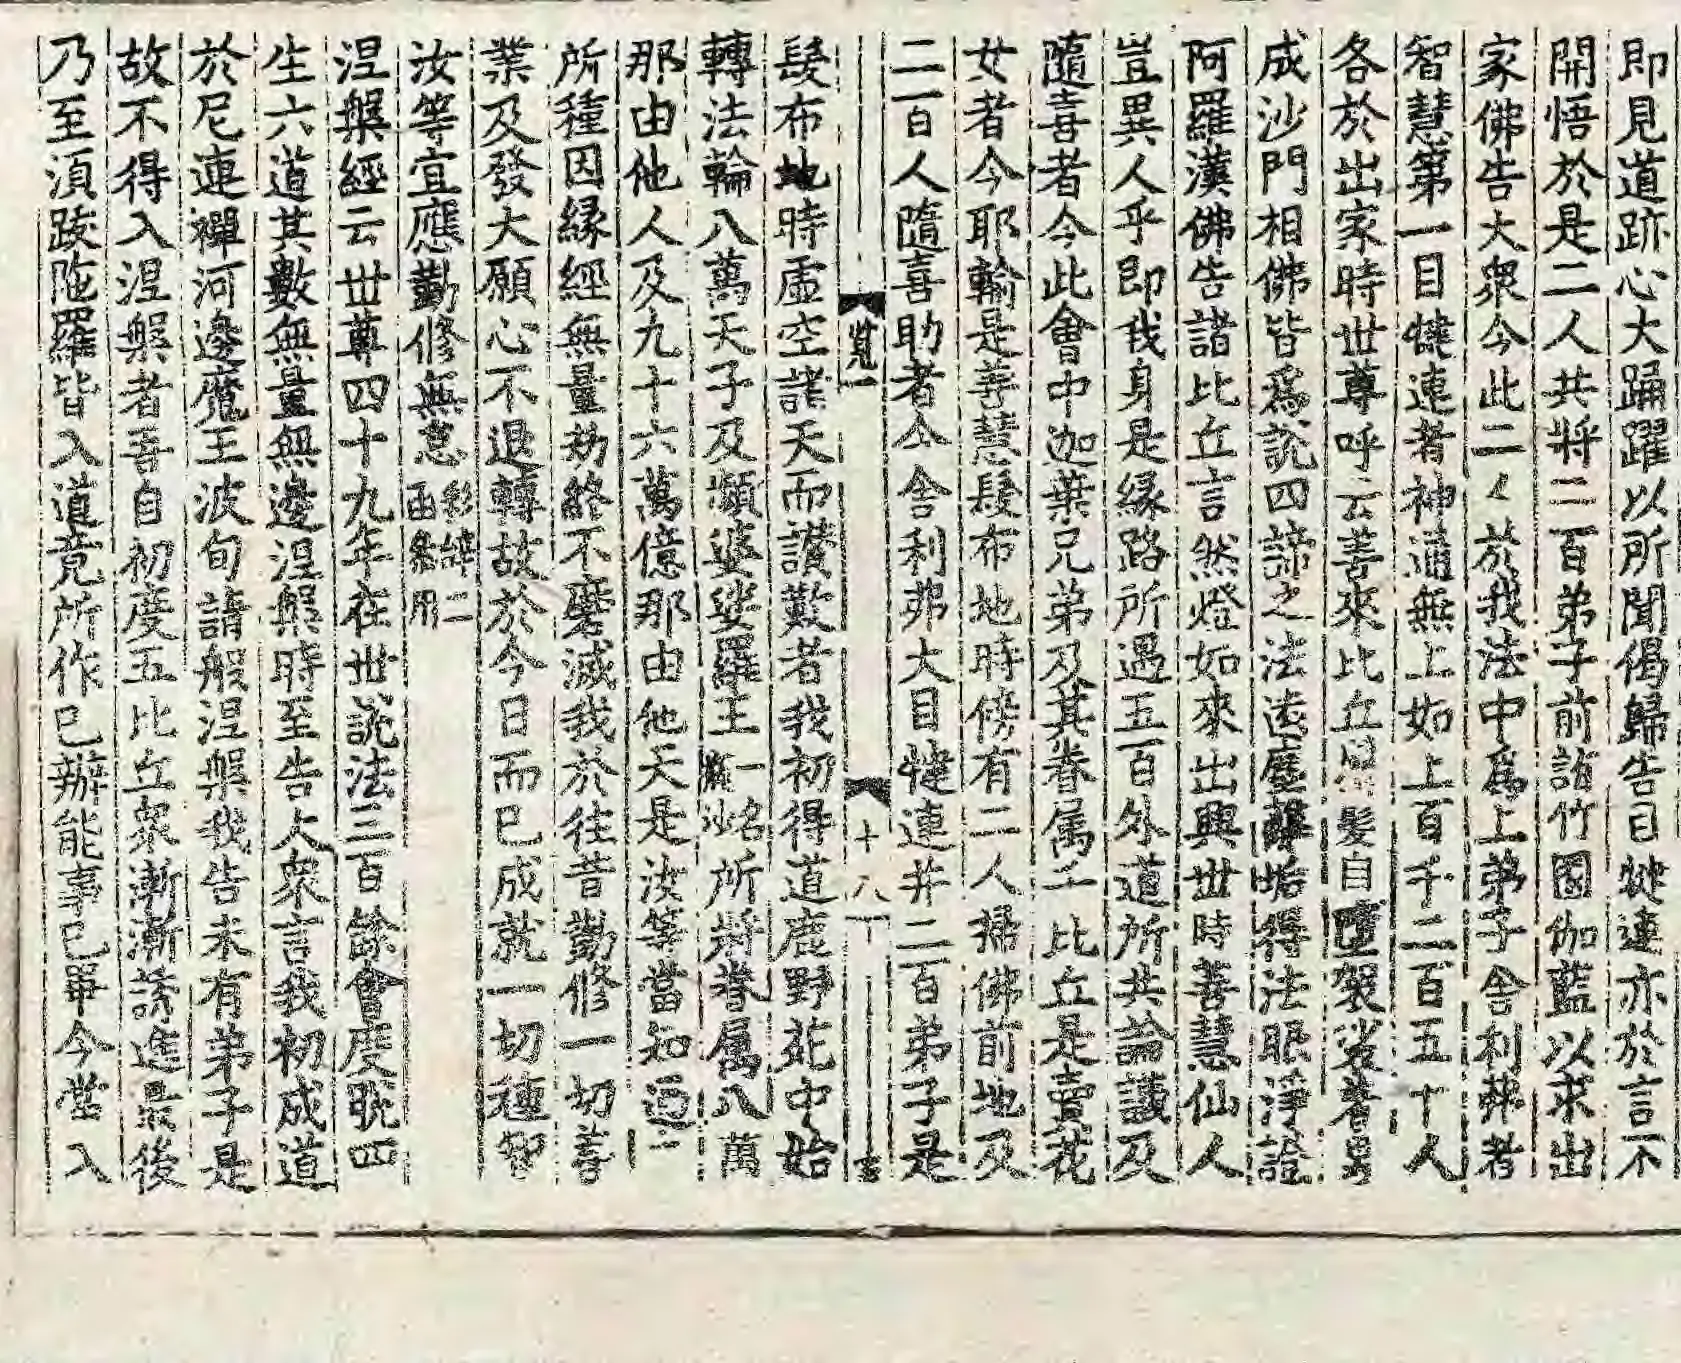 即見道跡心大踊躍以所聞偈歸告目犍連亦於言下
開悟於是二人共將二百弟子前詣竹園伽藍以求出
家佛告大衆今此二人於我法中爲上弟子舍利弗者
智慧第一目犍連者神通無上如上百千二百五十人
各於出家時世尊呼云善來比丘鬚髮自墮袈裟着身
成沙門相佛皆爲說四諦之法遠塵離垢得法眼淨證
阿羅漢佛告諸比丘言然燈如來出興世時善慧仙人
豈異人乎卽我身是緣路所過五百外道所共論議及
隨喜者今此會中迦葉兄弟及其眷属千比丘是賣花
女者今耶輸是善慧髮布地時傍有二人掃佛前地及
二百人隨喜助者今舍利弗大目犍連幷二百弟子是
覽一 十八
髮布地時虛空諸天而讃歎者我初得道鹿野苑中始
轉法輪八萬天子及頻婆娑羅王一名瓶沙所將眷属八萬
那由他人及九十六萬億那由他天是汝等當知過去
所種因緣經無量劫終不磨滅我於往昔勤修一切善
業及發大願心不退轉故於今日而已成就一切種智
汝等宜應勤修無怠
涅槃經云世尊四十九年在世說法三百餘會度脫四
生六道其數無量無邊涅槃時至告大衆言我初成道
於尼連禪河邊魔王波旬請般涅槃我告未有弟子是
故不得入涅槃者吾自初度五比丘衆漸漸誘進最後
乃至湏跋陁羅皆入道竟所作已辦能事已畢今當入